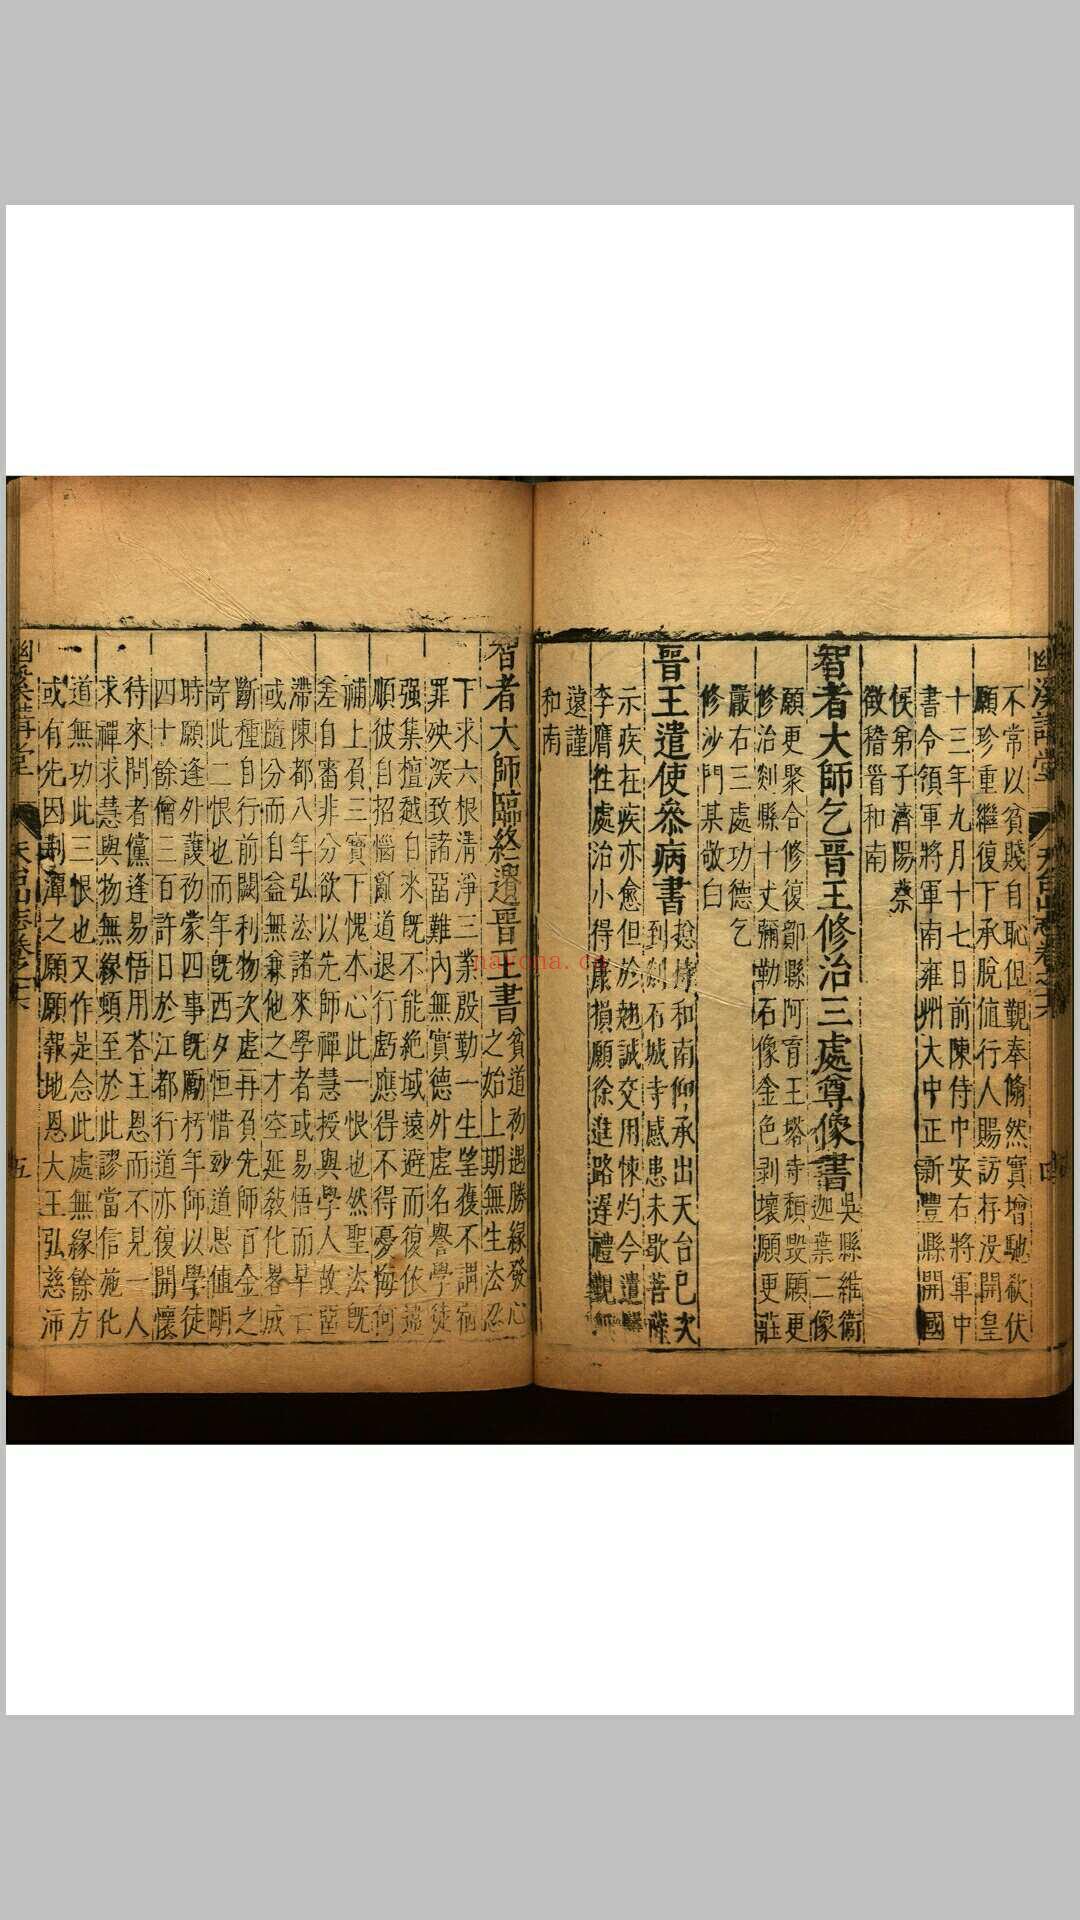 幽溪講堂 天台山志卷之六 四
不常以貧賤自恥但覲奉翛然實增馳欷伏
願珍重繼復下承脫值行人賜訪存没開皇
十三年九月十七日前陳侍中安右將軍中
書令領軍將軍南雍州大中正新豐縣開國
侯弟子濟陽蔡
徵稽首和南
智者大師乞晉王修治三處尊像書
吳縣維衛
迦葉二像
願更聚合修復鄮縣阿育王塔寺頹毀願更
修治剡縣十丈彌勒石像金色剥壞願更莊
嚴右三處功德乞
修沙門某敬白
晉王遣使參病書
總持和南仰承出天台已次
到剡石城寺感患未歇菩薩
示疾在疾亦愈但於翹誠交用悚灼今遣
李膺往處治小得康損願徐進路遲禮覲
遠謹
和南
智者大師臨終遺晉王書
貧道初遇勝緣發心
之始上期無生法忍
下求六根清淨三業殷勤一生望獲不謂宿
罪殃深致諸惡難內無實德外虛名譽學徒
强集檀越自來旣不能絶域遠避而復依違
順彼自招惱亂道退行虧應得不得憂悔何
補上負三寶下愧本心此一恨也然聖法旣
差自審非分欲以先師禪慧授與學人故
滯陳都八年弘法諸來學者或易悟而早
或隨分而自益無兼他之才空延教化畧成
斷種自行前闕利物次虛再負先師百金之
寄此二恨也而年旣西夕恒惜妙道思值明
時願逢外護初蒙四事旣勵朽年師以學徒
四十餘僧三百許日於江都行道亦復開懷
待來問者儻逢易悟用荅王恩而不見一人
求禪求慧與物無緣頓至於此謬當信施化
道無功此三恨也又作是念此處無緣餘方
或有先因荆潭之願願報地恩大王弘慈沛
幽溪講堂 天台山志卷之六 五
nayona.cn